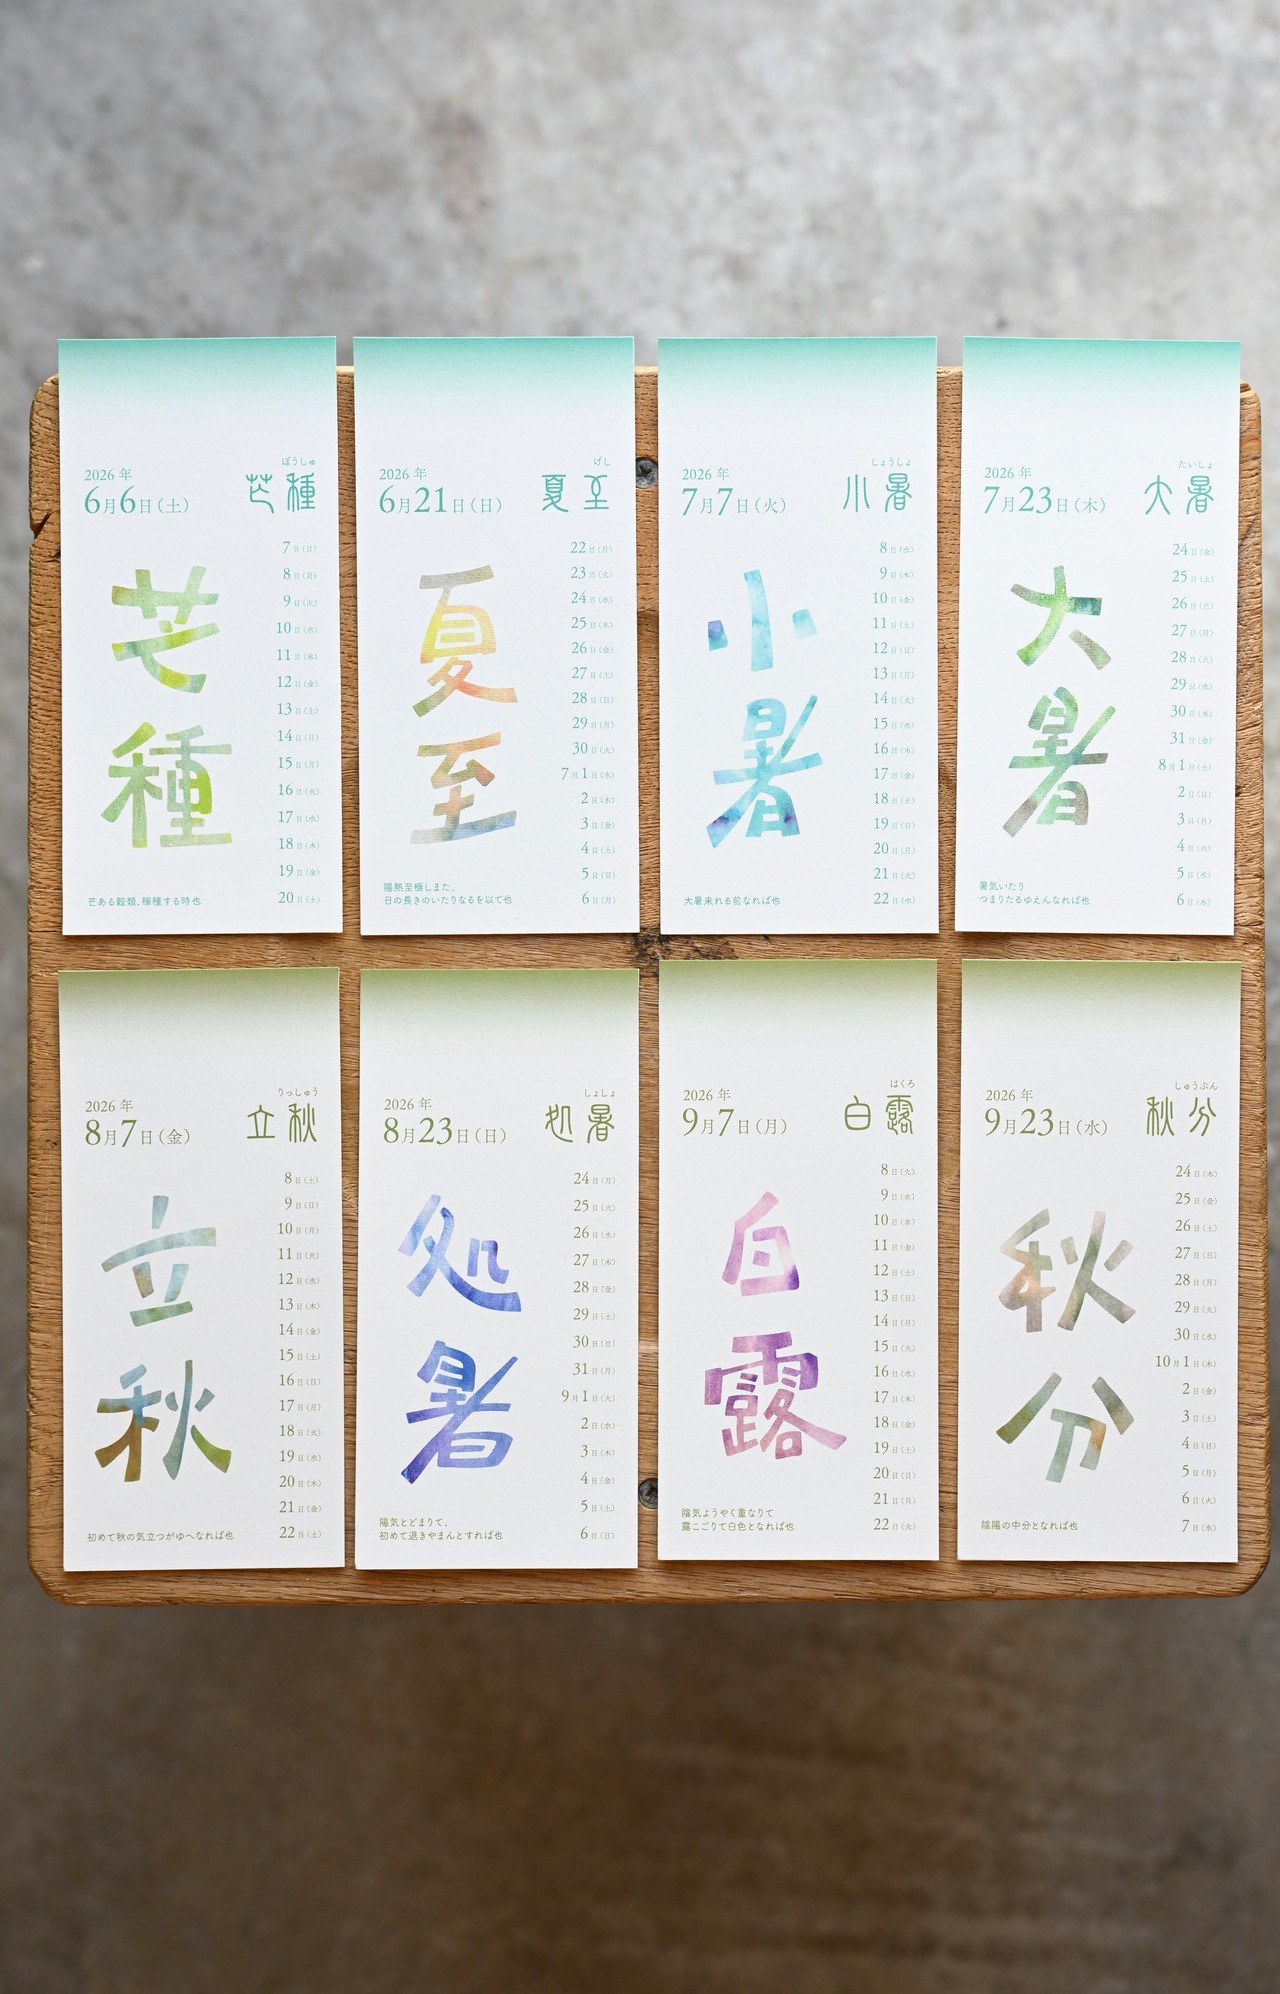 2026年
6月6日(土)
ぼうしゅ
芒種
芒種
7日(日)
8日(月)
9日(火)
10日(水)
11日(木)
12日(金)
13日(土)
14日(日)
15日(月)
16日(火)
17日(水)
18日(木)
19日(金)
20日(土)
芒ある穀類、稼種する時也
2026年
6月21日(日)
げし
夏至
夏至
22日(月)
23日(火)
24日(水)
25日(木)
26日(金)
27日(土)
28日(日)
29日(月)
30日(火)
7月1日(水)
2日(木)
3日(金)
4日(土)
5日(日)
6日(月)
陽熱至極しまた、
日の長きのいたりなるを以て也
2026年
7月7日(火)
しょうしょ
小暑
小暑
8日(水)
9日(木)
10日(金)
11日(土)
12日(日)
13日(月)
14日(火)
15日(水)
16日(木)
17日(金)
18日(土)
19日(日)
20日(月)
21日(火)
22日(水)
大暑来れる前なれば也
2026年
7月23日(木)
たいしょ
大暑
大暑
24日(金)
25日(土)
26日(日)
27日(月)
28日(火)
29日(水)
30日(木)
31日(金)
8月1日(土)
2日(日)
3日(月)
4日(火)
5日(水)
6日(木)
暑気いたり
つまりたるゆえんなれば也
2026年
8月7日(金)
りっしゅう
立秋
立秋
8日(土)
9日(日)
10日(月)
11日(火)
12日(水)
13日(木)
14日(金)
15日(土)
16日(日)
17日(月)
18日(火)
19日(水)
20日(木)
21日(金)
22日(土)
初めて秋の気立つがゆへなれば也
2026年
8月23日(日)
しょしょ
処暑
処暑
24日(月)
25日(火)
26日(水)
27日(木)
28日(金)
29日(土)
30日(日)
31日(月)
9月1日(火)
2日(水)
3日(木)
4日(金)
5日(土)
6日(日)
陽気とどまりて、
初めて退きやまんとすれば也
2026年
9月7日(月)
はくろ
白露
白露
8日(火)
9日(水)
10日(木)
11日(金)
12日(土)
13日(日)
14日(月)
15日(火)
16日(水)
17日(木)
18日(金)
19日(土)
20日(日)
21日(月)
22日(火)
陰気ようやく重なりて
露こごりて白色となれば也
2026年
9月23日(水)
しゅうぶん
秋分
秋分
24日(木)
25日(金)
26日(土)
27日(日)
28日(月)
29日(火)
30日(水)
10月1日(木)
2日(金)
3日(土)
4日(日)
5日(月)
6日(火)
7日(水)
陰陽の中分となれば也